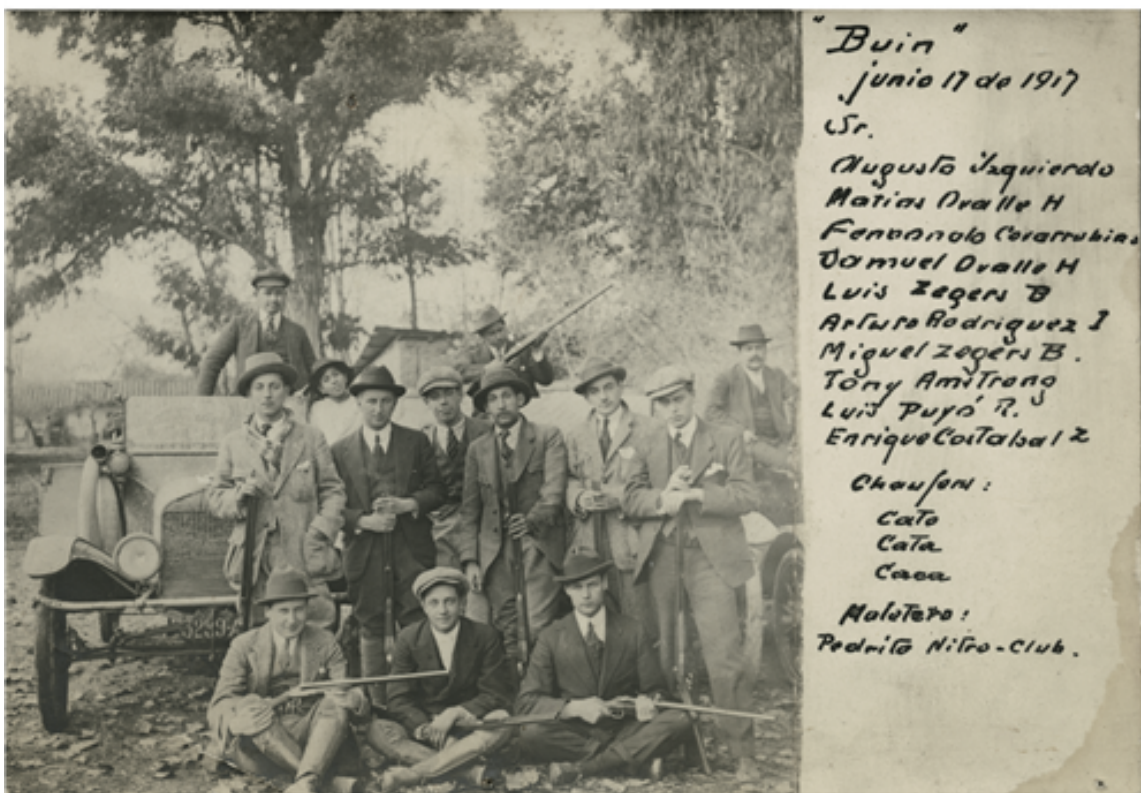 "Buin"
junio 17 de 1917
Sr.
Augusto Izquierdo
Matias Ovalle H
Fernando Covarrubias
Samuel Ovalle H
Luis Zegers B
Arturo Rodriguez I
Miguel Zegers B.
Tony Amstrong
Luis Puyó R.
Enrique Costabal Z
Chaufers:
Cato
Cata
Caca
Malotero:
Pedrito Nitro-Club.